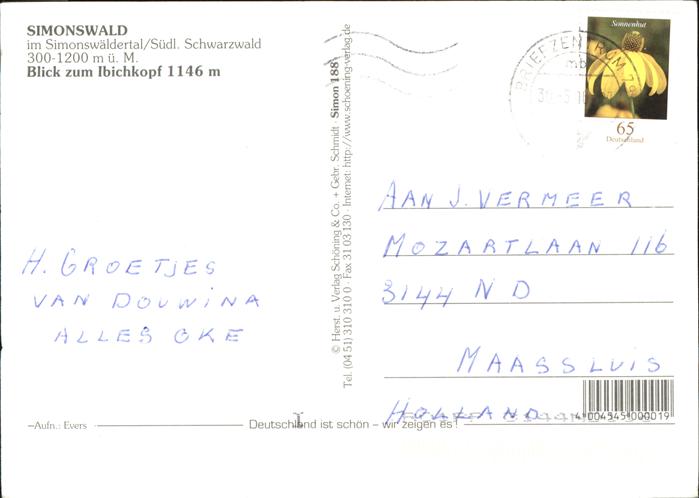 SIMONSWALD
im Simonswäldertal/Südl. Schwarzwald
300-1200 m ü. M.
Blick zum Ibichkopf 1146 m
H. GROETJES
VAN DOUWINA
ALLES OKE
—Aufn.: Evers
Deutschland ist schön – wir zeigen es!
© Herst. u. Verlag Schöning & Co. + Gebr. Schmidt · Simon 188
Tel. (04 51) 310 310 0 · Fax 31 03 130 · Internet: http://www.schoening-verlag.de
Sonnenhut
65
Deutschland
BRIEFZENTRUM
mb
AAN J. VERMEER
MOZARTLAAN 116
3144 ND
MAASSLUIS
HOLLAND
4 004545 000019